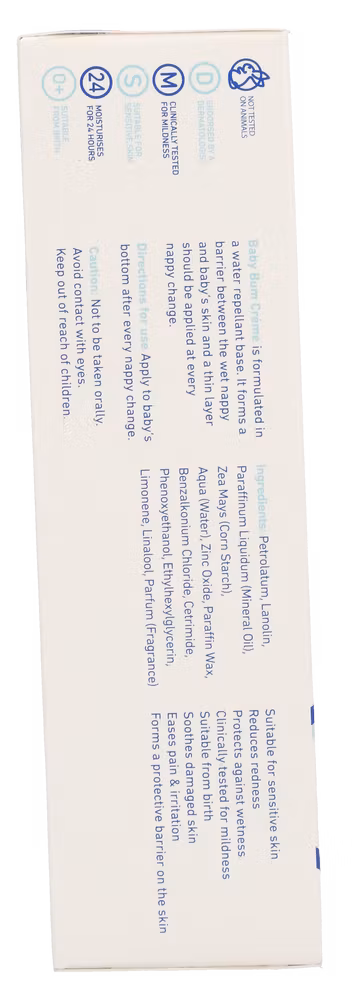 NOT TESTED
ON ANIMALS
D
ENDORSED BY A
DERMATOLOGIST
M
CLINICALLY TESTED
FOR MILDNESS
S
SUITABLE FOR
SENSITIVE SKIN
24
MOISTURISES
FOR 24 HOURS
0+
SUITABLE
FROM BIRTH
Baby Bum Crème is formulated in
a water repellant base. It forms a
barrier between the wet nappy
and baby's skin and a thin layer
should be applied at every
nappy change.
Directions for use: Apply to baby's
bottom after every nappy change.
Caution: Not to be taken orally.
Avoid contact with eyes.
Keep out of reach of children.
Ingredients: Petrolatum, Lanolin,
Paraffinum Liquidum (Mineral Oil),
Zea Mays (Corn Starch),
Aqua (Water), Zinc Oxide, Paraffin Wax,
Benzalkonium Chloride, Cetrimide,
Phenoxyethanol, Ethylhexylglycerin,
Limonene, Linalool, Parfum (Fragrance)
Suitable for sensitive skin
Reduces redness
Protects against wetness
Clinically tested for mildness
Suitable from birth
Soothes damaged skin
Eases pain & irritation
Forms a protective barrier on the skin